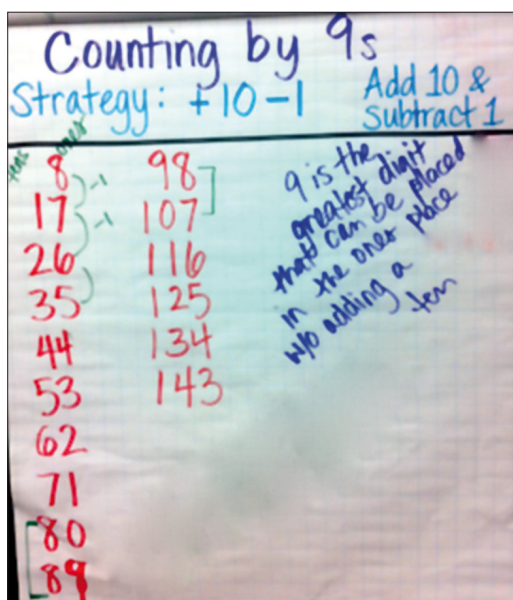 Counting by 9s
Strategy: +10-1
Add 10 &
subtract 1
tens ones
8
17
26
35
44
53
62
71
80
89
-1
-1
98
107
116
125
134
143
9 is the
greatest digit
that can be placed
in the ones place
w/o adding a
ten